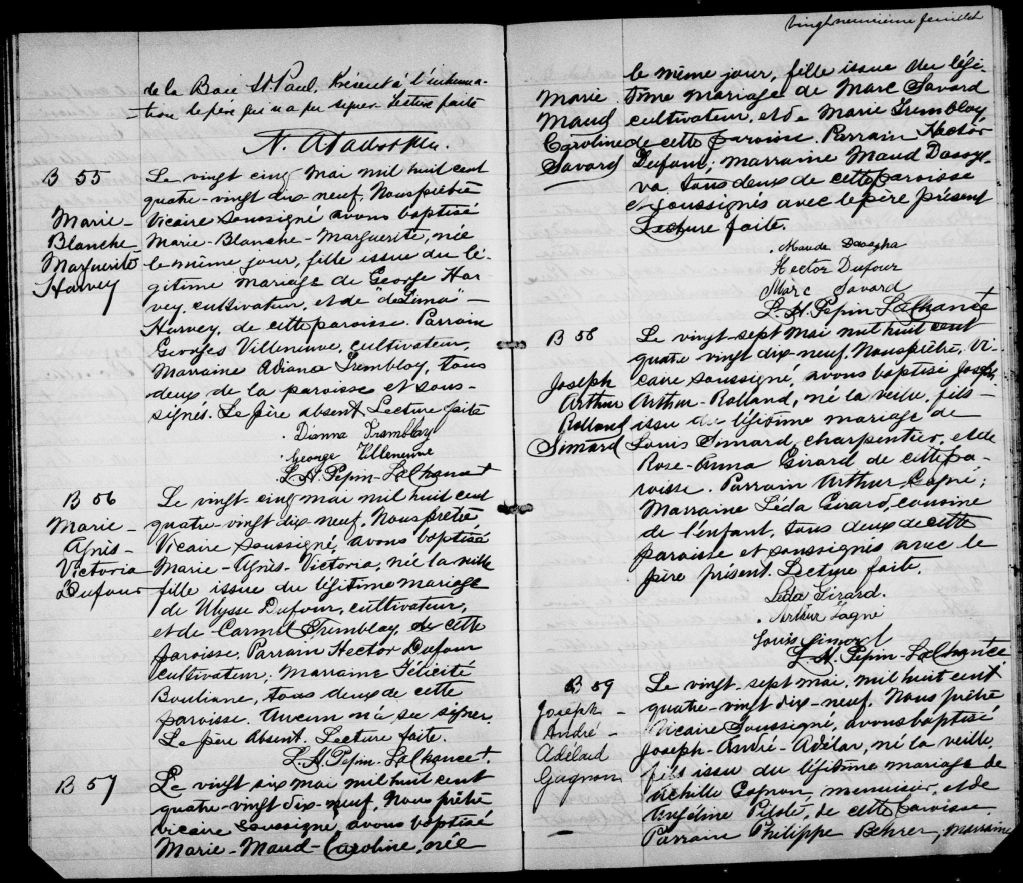 de la Baie St Paul. Présent à l'inhuma-
tion le père qui n'a pu signer Lecture faite
B 55
Marie-
Blanche
Marguerite
Harvey
Le vingt cinq mai mil huit cent
quatre-vingt dix-neuf. Nous prêtre
Vicaire soussigné avons baptisé
Marie-Blanche-Marguerite, née
le même jour, fille issue du lé-
gitime mariage de George Har-
vey, cultivateur, et de "délima"-
Harvey, de cette paroisse. Parrain
Georges Villeneuve, cultivateur,
Marraine Adianna Tremblay, tous
deux de la paroisse et sous-
signés. Le père absent Lecture faite
Dianna Tremblay
George Villeneuve
L. H. Pepin-Lachance
B 56
Marie-
Agnès-
Victoria
Dufour
Le vingt-cinq mai mil huit cent
quatre-vingt dix-neuf, Nous prêtre
Vicaire soussigné, avons baptisé
Marie-Agnès-Victoria, née la veille
fille issue du légitime mariage
de Ulysse Dufour, cultivateur,
et de Carmel Tremblay, de cette
paroisse, Parrain Hector Dufour
cultivateur; Marraine Félicité
Bouliane, tous deux de cette
paroisse. Aucun n'a su signer
Le père absent. Lecture faite.
L. H. Pepin-Lachance
B 57
Le vingt six mai mil huit cent
quatre-vingt dix-neuf, Nous prêtre
vicaire soussigné, avons baptisé
Marie-Maud-Caroline, née
vingt neuvième feuillet
Marie
Maud
Caroline
Savard
le même jour, fille issue du légi-
time mariage de Marc Savard
cultivateur, et de Marie Tremblay
de cette paroisse. Parrain Hector
Dufour; marraine Maud
tous deux de cette paroisse
soussignés avec le père présent
Lecture faite.
Maude
Hector Dufour
Marc Savard
L. H. Pepin-Lachance
B 58
Joseph
Arthur
Rolland
Simard
Le vingt-sept mai mil huit cent
quatre vingt dix-neuf. Nous prêtre, Vi-
caire soussigné, avons baptisé Joseph
Arthur-Rolland, né la veille, fils-
issu du légitime mariage de
Louis Simard, charpentier, et de
Rose-Anna Girard de cette pa-
roisse. Parrain Arthur
Marraine Léda Girard, cousine
de l'enfant, tous deux de cette
paroisse et soussignés avec le
père présent. Lecture faite.
Léda Girard.
Arthur
Louis Simard
L. H. Pepin-Lachance
B 59
Joseph-
André-
Adélard
Gagnon
Le vingt-sept mai, mil huit cent
quatre-vingt dix-neuf. Nous prêtre
Vicaire soussigné, avons baptisé
Joseph-André-Adélar, né la veille
fils issu du légitime mariage de
Achille Gagnon, menuisier, et de
Angéline Pilote, de cette paroisse
Parrain Philippe marraine